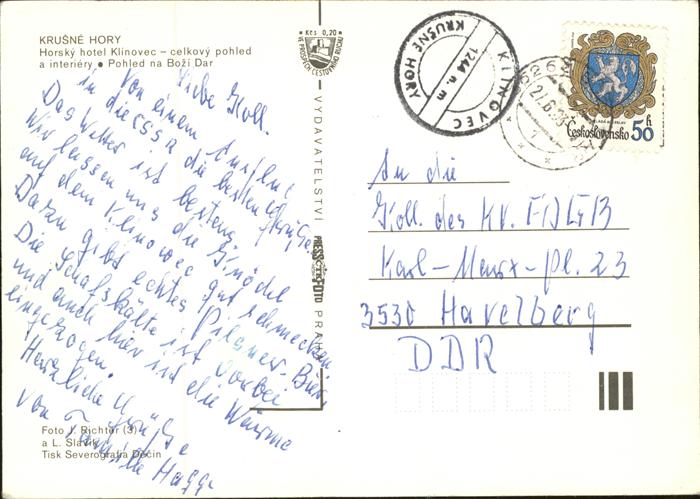 KRUŠNÉ HORY
Horský hotel Klínovec – celkový pohled
a interiéry • Pohled na Boží Dar
Liebe Koll.
Von einem Ausflug
in die CSSR die besten Grüße
Das Wetter ist bestens.
Wir lassen uns die Knödel
auf dem Klinovec gut schmecken
Dazu gibt echtes Pilsner-Bier
Die Schafskälte ist vorbei
und auch hier ist die Wärme
eingezogen.
Herzliche Grüße
von
Familie
Foto J. Richter (3)
a L. Slavík
Tisk Severografia Děčín
Kčs 0,20
VE PROSPĚCH CESTOVNÍHO RUCHU
VYDAVATELSTVÍ PRESSFOTO PRAHA
KRUŠNÉ HORY
1244 n. m.
KLÍNOVEC
Československo 50 h
An die
Koll. des KV. FDGB
Karl-Marx-Pl. 23
3530 Havelberg
DDR